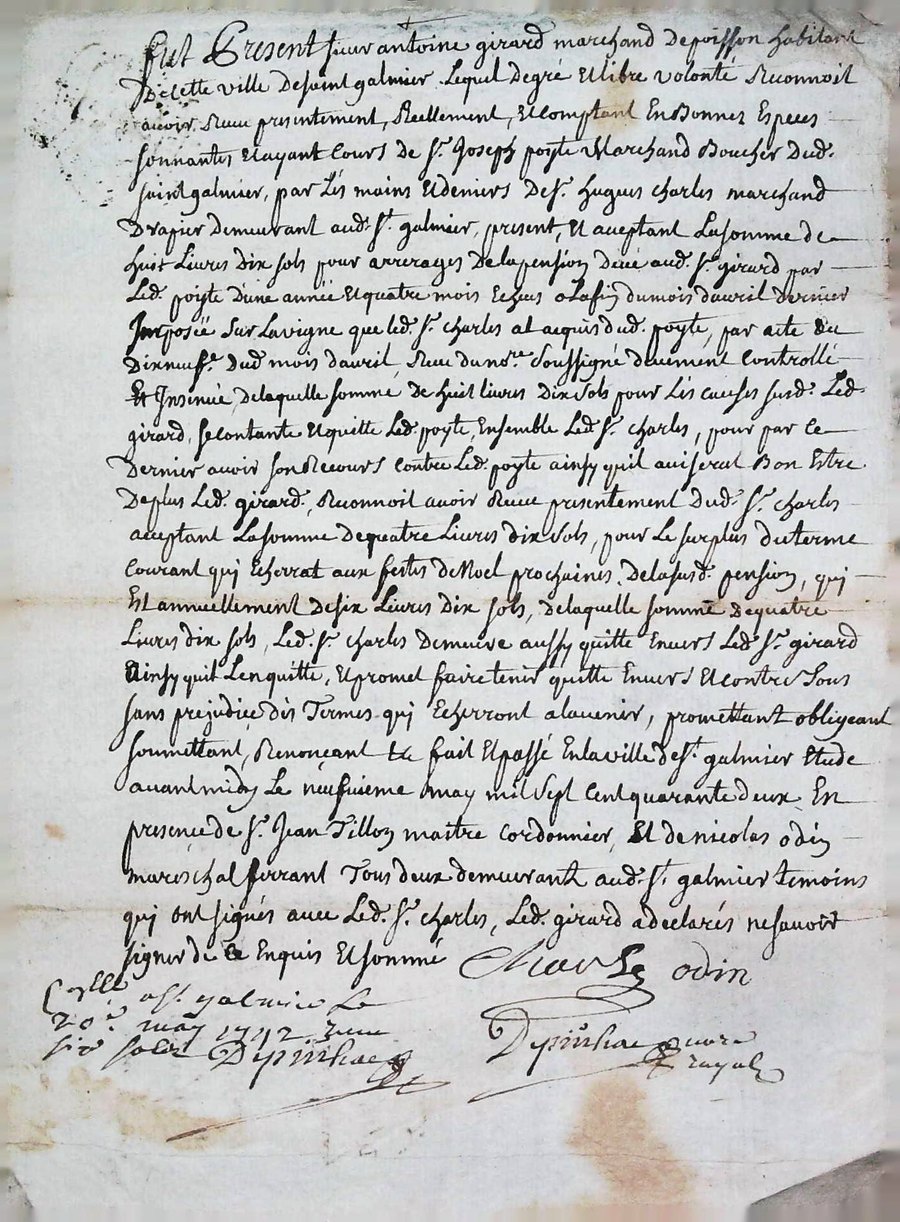 Fut Present sieur antoine girard marchand de poisson habitant
De cette ville de saint galmier. Lequel de gré et libre volonté Reconnoit
avoir Receu presentement, Reellement, et comptant En Bonnes Especes
sonnantes et ayant Cours de Sr. Joseph poyte Marchand Boucher dud.
saint galmier, par Les mains et deniers de Sr. hugues charles marchand
Drapier demeurant aud. St. galmier, present, et aceptant La somme de
huit Livres dix sols pour arrerages de la pension deüe aud. Sr. girard par
Led. poyte d'une année et quatre mois Echus a la fin du mois d'avril dernier
Imposée sur La vigne que led. Sr. charles at acquis dud. poyte, par acte du
dixneufe. dud. mois d'avril, Receu du nore. soussigné deuement Controllé
Et Insinué, de laquelle somme de huit livres dix sols pour Les causes susd. Led.
girard, se contante et quitte Led. poyte, Ensemble Led. Sr. charles, pour par ce
Dernier avoir son Recours Contre Led. poyte ainsy quil aviserat Bon Estre
De plus Led. girard, Reconnoit avoir Receu presentement dud. Sr. charles
aceptant La somme de quatre Livres dix sols, pour Le surplus du terme
Courant qui Echerrat aux festes de Noel prochaines, de la susd. pension, qui
Est annuellement de six Livres dix sols, de laquelle somme de quatre
Livres dix sols, Led. Sr. charles demeure aussy quitte Envers Led. Sr. girard
Ainsy quil Lenquitte, et promet faire tenir quitte Envers et contre Tous
sans prejudice des Termes qui Echerront a lavenir, promettant obligeant
soumettant, Renonçant &c fait et passé En la ville de St. galmier Etude
avant midy Le neufvieme may mil sept cent quarante deux, En
presence de Sr. Jean Tillon maitre Cordonnier, et de nicolas odin
mareschal ferrant Tous deux demeurants aud. St. galmier temoins
qui ont signés avec Led. Sr. charles, Led. girard a declarés ne savoir
signer de ce Enquis et sommé
Charles odin
Depinhac nore
royal
Conlle a St. galmier Le
20e may 1742 Receu
six sols Depinhac